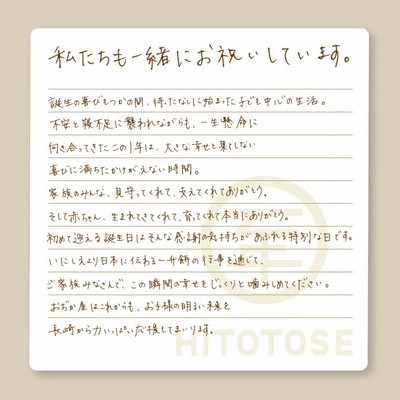 私たちも一緒にお祝いしています。
誕生の喜びもつかの間、待ったなしに始まった子ども中心の生活。
不安と寝不足に襲われながらも、一生懸命に
向き合ってきたこの1年は、大きな幸せと果てしない
喜びに満ちたかけがえない時間。
家族のみんな、見守ってくれて、支えてくれてありがとう。
そして赤ちゃん、生まれてきてくれて、育ってくれて本当にありがとう。
初めて迎える誕生日はそんな感謝の気持ちがあふれる特別な日です。
いにしえより日本に伝わる一升餅の行事を通じて、
ご家族みなさんで、この瞬間の幸せをじっくりと噛みしめてください。
おぢか屋はこれからも、お子様の明るい未来を
長崎から力いっぱい応援してまいります。
HITOTOSE